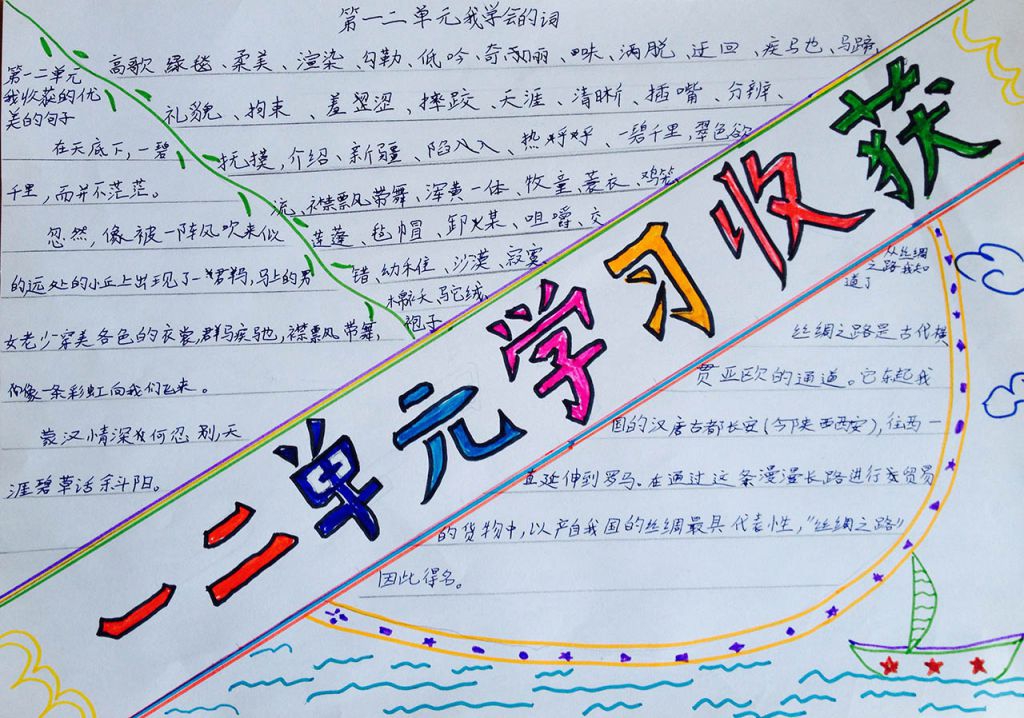 第一二单元我学会的词
高歌 绿毯、柔美、渲染、勾勒、低吟、奇丽、味、洒脱、迂回、疾驰、马蹄、
礼貌、拘束、羞涩、摔跤、天涯、清晰、插嘴、分辨、
抚摸,介绍、新疆、陷入、热乎乎、一碧千里,翠色欲
流、襟飘带舞、浑黄一体、牧童、蓑衣、鸡笼、
莲蓬、毡帽、卸煤、咀嚼、交
错、幼稚、沙漠、寂寞、
骆驼绒、
袍子
第一二单元
我收获的优
美的句子
在天底下,一碧
千里,而并不茫茫。
忽然,像被一阵风吹来似
的远处的小丘上出现了一群马,马上的男
女老少穿着各色的衣裳,群马疾驰,襟飘带舞,
像一条彩虹向我们飞来。
蒙汉情深何忍别,天
涯碧草话斜阳。
一二单元学习收获
从丝绸
之路我知
道了
丝绸之路是古代横
贯亚欧的通道。它东起我
国的汉唐古都长安(今陕西西安),往西一
直延伸到罗马。在通过这条漫漫长路进行贸易
的货物中,以产自我国的丝绸最具代表性,“丝绸之路”
因此得名。